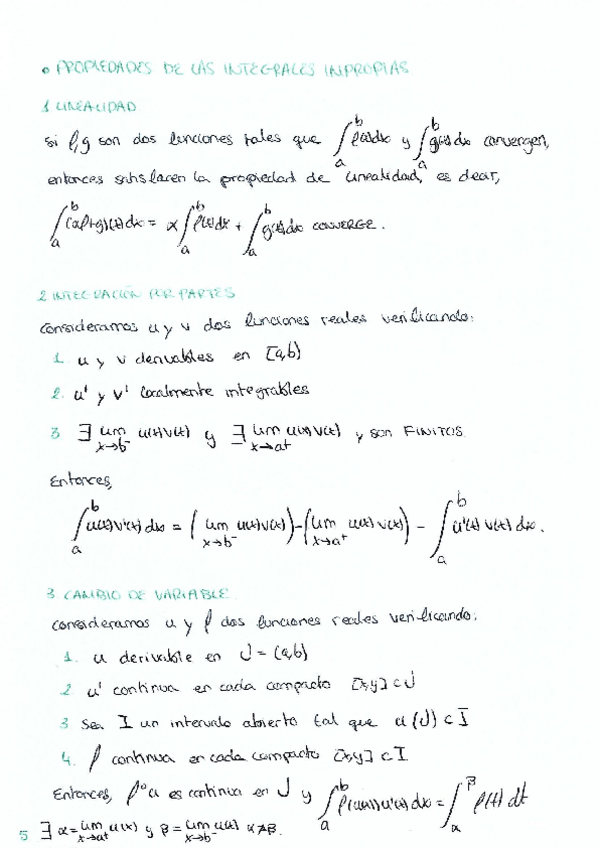 • PROPIEDADES DE LAS INTEGRALES INPROPIAS
1 LINEALIDAD
Si f,g son dos funciones tales que ∫_a^b f(x)dx y ∫_a^b g(x)dx convergen,
entonces satisfacen la propiedad de linealidad, es decir,
∫_a^b (αf+g)(x)dx = α∫_a^b f(x)dx + ∫_a^b g(x)dx CONVERGE.
2 INTEGRACIÓN POR PARTES
Consideramos u y v dos funciones reales verificando:
1. u y v derivables en [a,b)
2. u' y v' localmente integrables
3 ∃ lim_{x→b⁻} u(x)v(x) y ∃ lim_{x→a⁺} u(x)v(x) y son FINITOS.
Entonces,
∫_a^b u(x)v'(x)dx = (lim_{x→b⁻} u(x)v(x)) - (lim_{x→a⁺} u(x)v(x)) - ∫_a^b u'(x)v(x)dx.
3 CAMBIO DE VARIABLE
Consideramos u y f dos funciones reales verificando:
1. u derivable en J = (a,b)
2 u' continua en cada compacto [x,y] ⊂ J
3 Sea I un intervalo abierto tal que u(J) ⊂ I
4. f continua en cada compacto [x,y] ⊂ I
Entonces, f∘u es continua en J y ∫_a^b f(u(x))u'(x)dx = ∫_α^β f(t)dt
5 ∃ α = lim_{x→a⁺} u(x) y β = lim_{x→b⁻} u(x) α≠β.